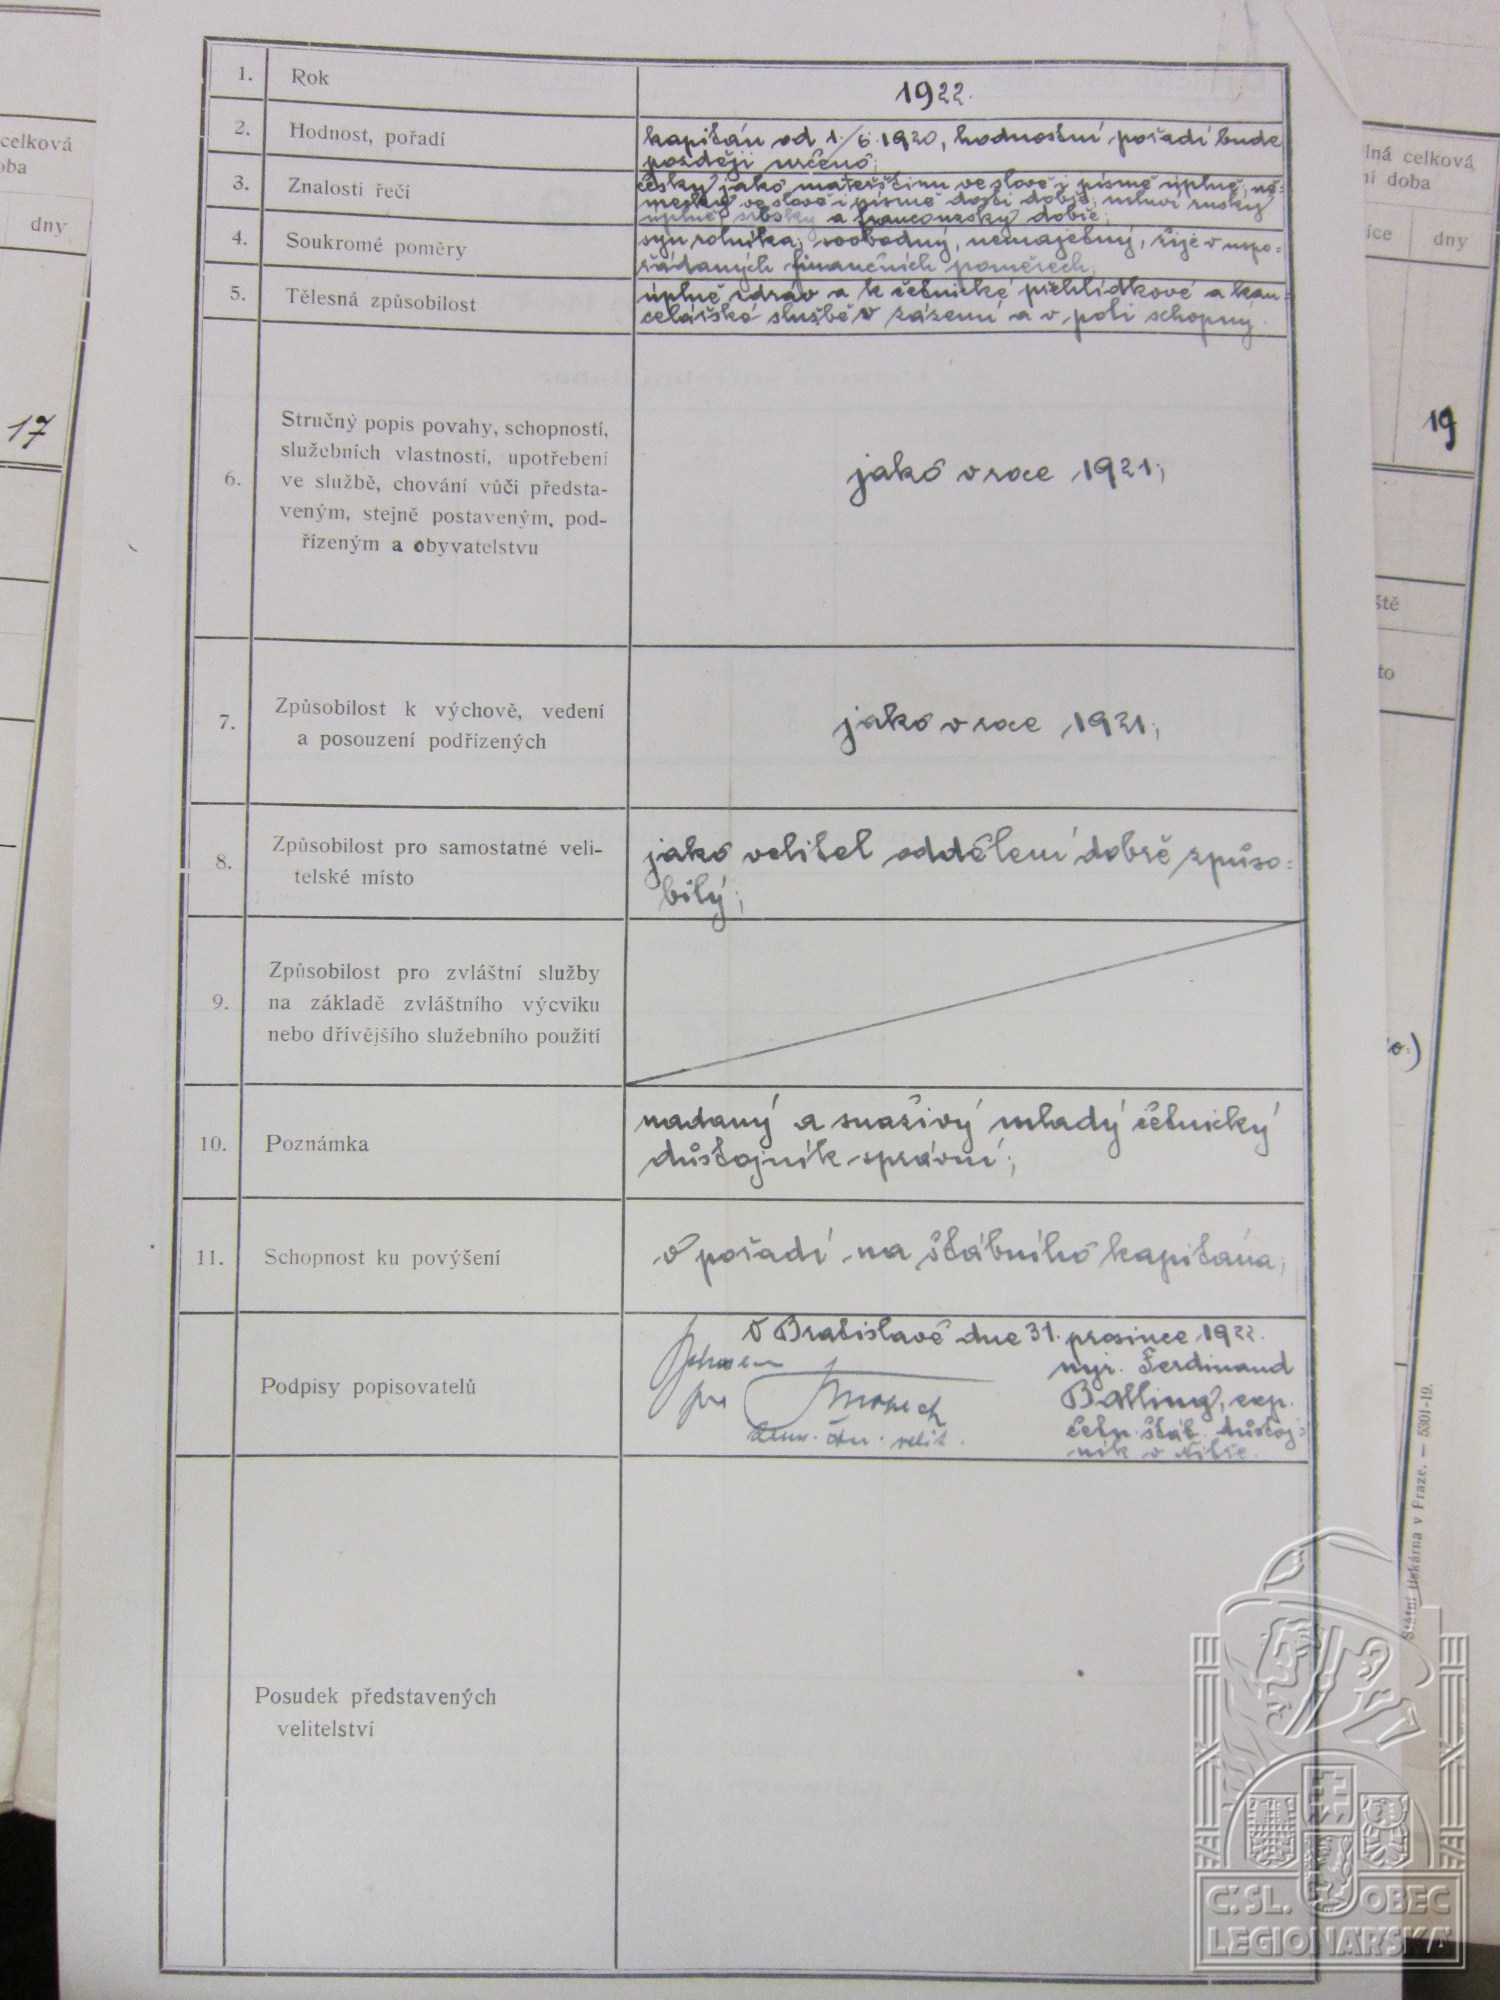 1. Rok 1922.
2. Hodnost, pořadí kapitán od 1./6. 1920, hodnostní pořadí bude
později určeno;
3. Znalosti řečí česky jako mateřštinu ve slově i písmě úplně, ně-
mecky ve slově i písmě dosti dobře; mluví rusky
úplně, srbsky a francouzsky dobře;
4. Soukromé poměry syn rolníka, svobodný, nemajetný, žije v uspo-
řádaných finančních poměrech;
5. Tělesná způsobilost úplně zdráv a k četnické přehlídkové a kan-
celářské službě v zázemí a v poli schopný.
6. Stručný popis povahy, schopností,
služebních vlastností, upotřebení
ve službě, chování vůči předsta-
veným, stejně postaveným, pod-
řízeným a obyvatelstvu
jako v roce 1921;
7. Způsobilost k výchově, vedení
a posouzení podřízených
jako v roce 1921;
8. Způsobilost pro samostatné veli-
telské místo
jako velitel oddělení dobře způso-
bilý;
9. Způsobilost pro zvláštní služby
na základě zvláštního výcviku
nebo dřívějšího služebního použití
10. Poznámka
nadaný a snaživý mladý četnický
důstojník správní;
11. Schopnost ku povýšení v pořadí na štábního kapitána;
Podpisy popisovatelů
V Bratislavě dne 31. prosince 1922.
mjr. Ferdinand
Balling, exp.
četn. štáb. důstoj-
ník v Nitře.
velit.
Posudek představených
velitelství
celková
oba
dny
17
lná celková
ní doba
íce dny
19
iště
to
Státní tiskárna v Praze. — 5301-19.
Č.SL. OBEC
LEGIONÁŘSKÁ